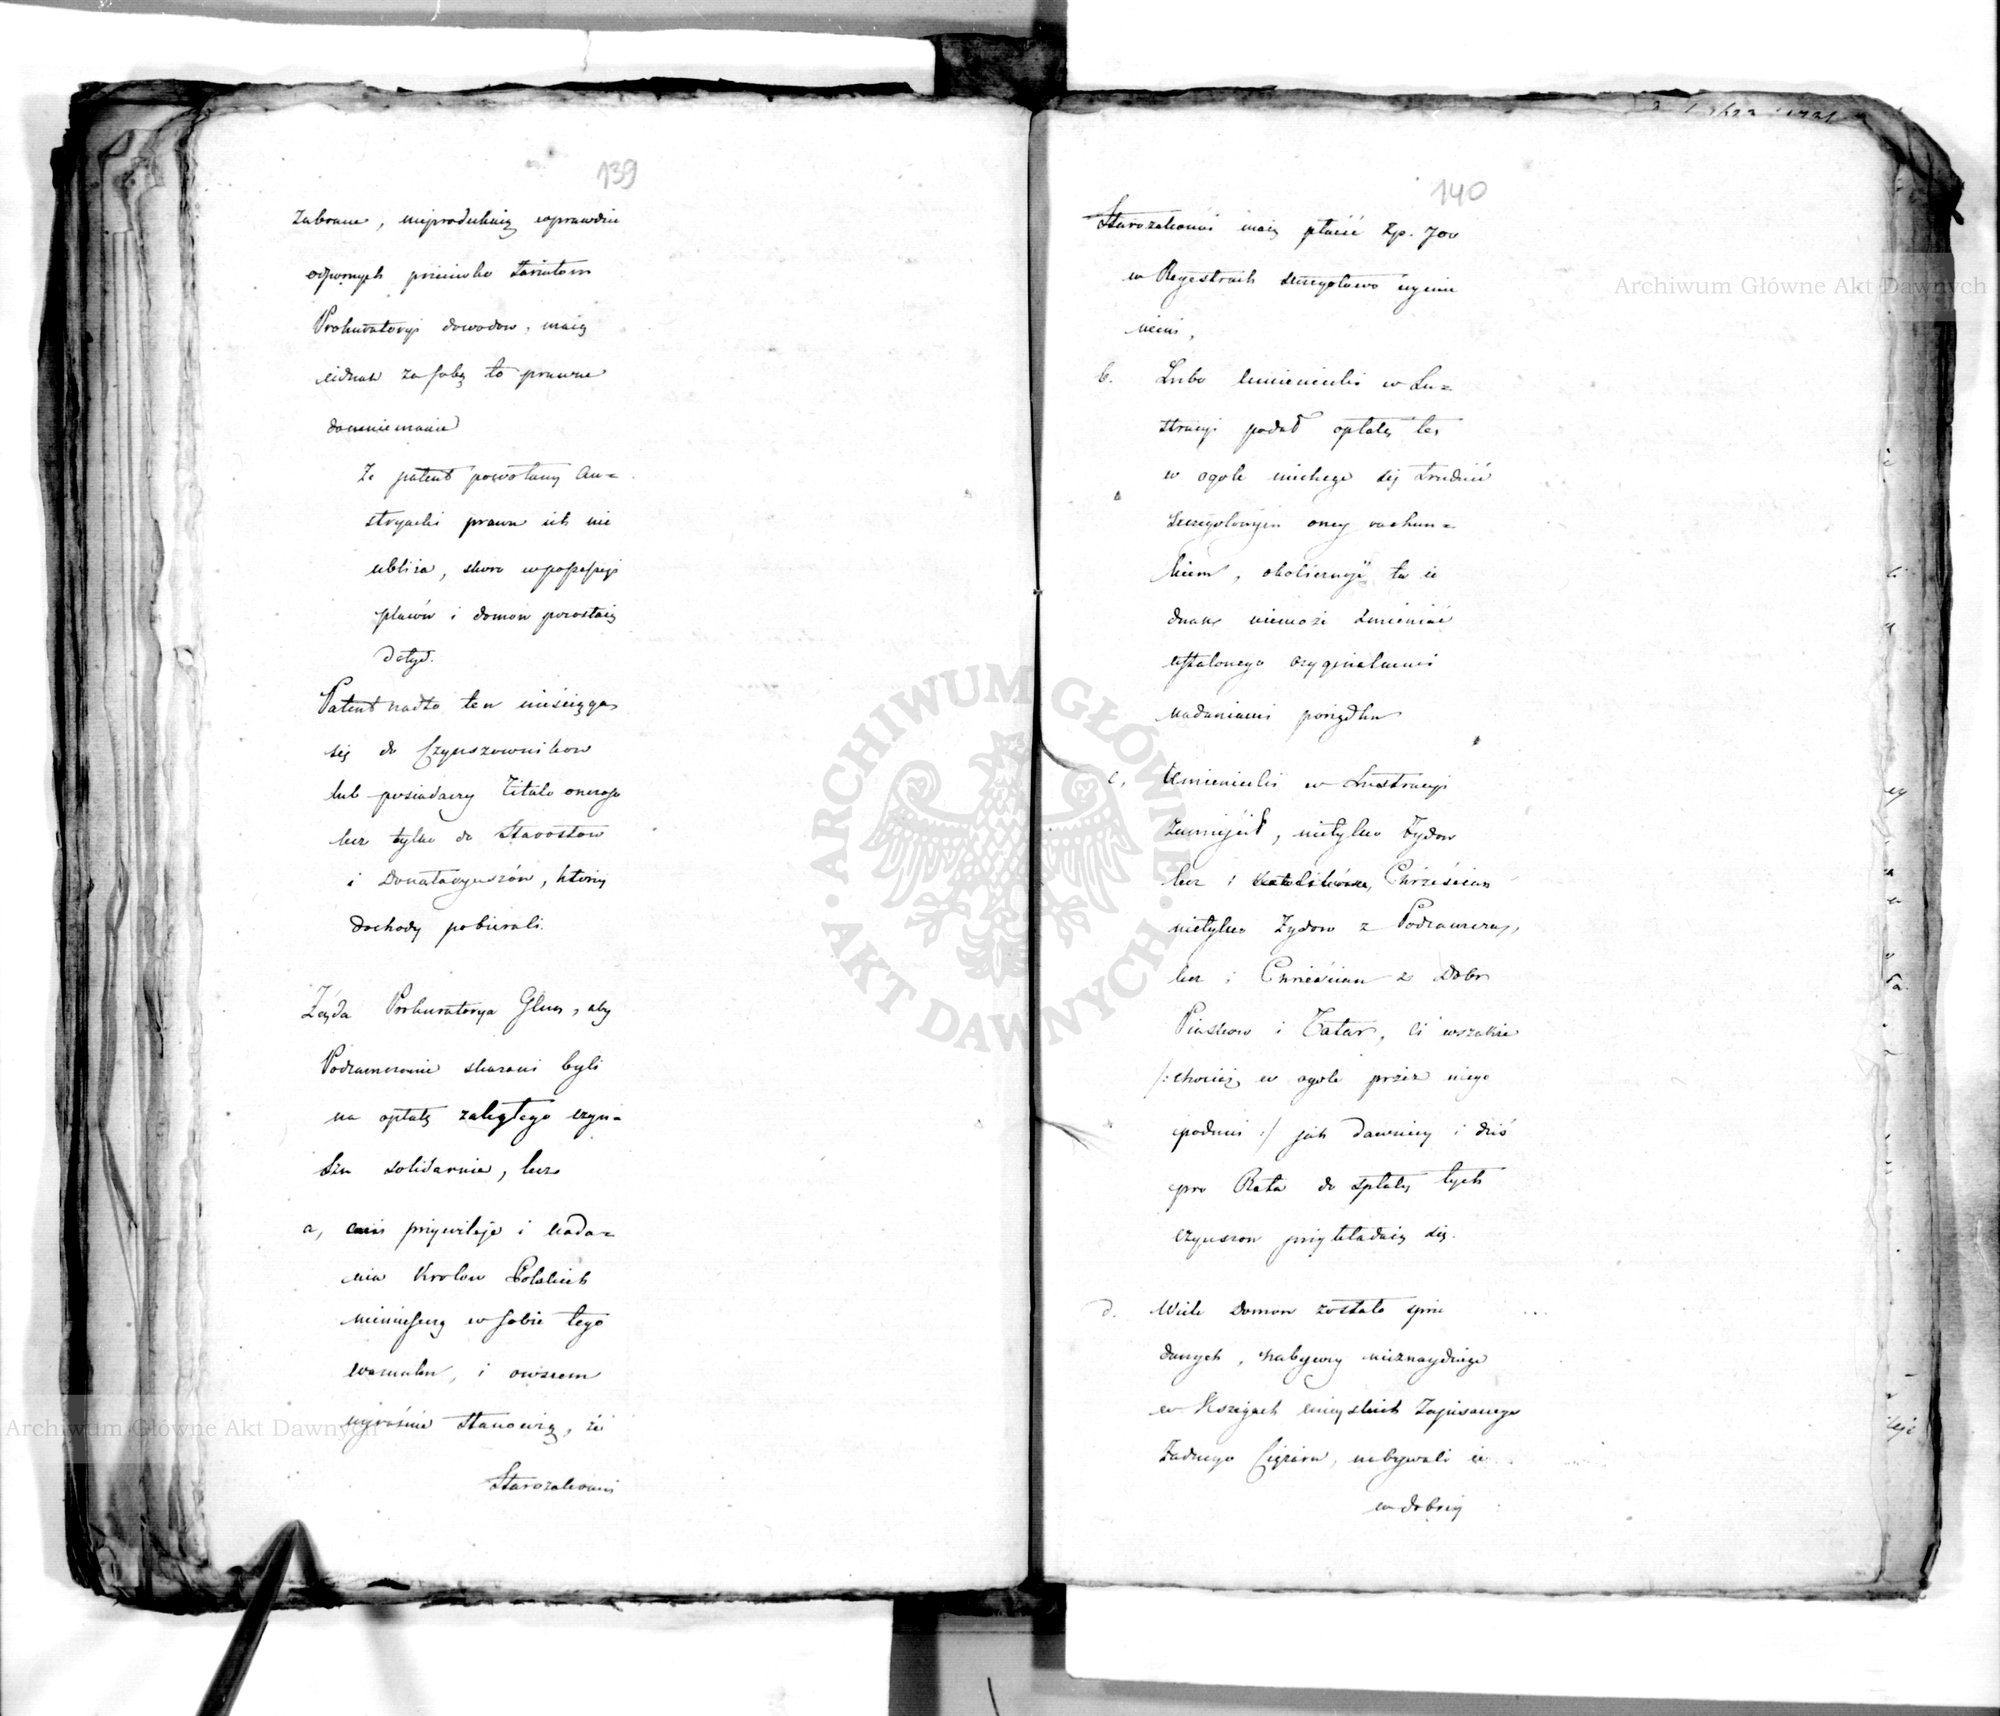 139
zabrane, nieprodukuią wprawdzie
odpornych przeciwko twierdzeniom
Prokuratoryi dowodow, maią
iednak za sobą to prawne
domniemanie
Że patent powołany Au=
stryacki prawu ich nie
ubliża, skoro w possessyi
placów i domow pozostaią
dotąd.
Patent nadto ten nieściąga
się do Czynszownikow
lub posiadaczy Titulo oneroso
lecz tylko do Starostow
i Donataryuszów, którzy
dochody pobierali.
Żąda Prokuratorya Glna, aby
Podzamczanie skazani byli
na opłatę zaległego czyn=
szu solidarnie, lecz
a, przywileje i nada=
nia Krolow Polskich
niemieszczą w sobie tego
warunku, i owszem
wyraźnie stanowią, że
Starozakonni
140
Starozakonni maią płacić Zp. 700
w Regestrach szczegółowo
b. Lubo w Lu=
stracyi podał opłatę tę
w ogole niechcąc się trudnić
szczegolowym oney rachun=
kiem, okoliczność ta ie
dnak niemoże zmieniać
ustalonego oryginalnemi
nadaniami porządku
c, w Lustracyi
zamieścił, nietylko Żydow
lecz i Chrześcian
nietylko Żydow z Podzamcza,
lecz i Chrześcian z Dobr
Piaskow i Tatar, ci wszakże
/: chociaż w ogole przez niego
podani :/ jak dawniey i dziś
pro Rata do spłaty tych
czynszow przykładaią się.
d. Wiele Domow zostało sprze
danych, nabywcy nieznaydując
w Księgach mieyskich zapisanego
żadnego Ciężaru, nabywali ie
w dobrey
Archiwum Główne Akt Dawnych
Archiwum Główne Akt Dawnych
ARCHIWUM GŁÓWNE AKT DAWNYCH